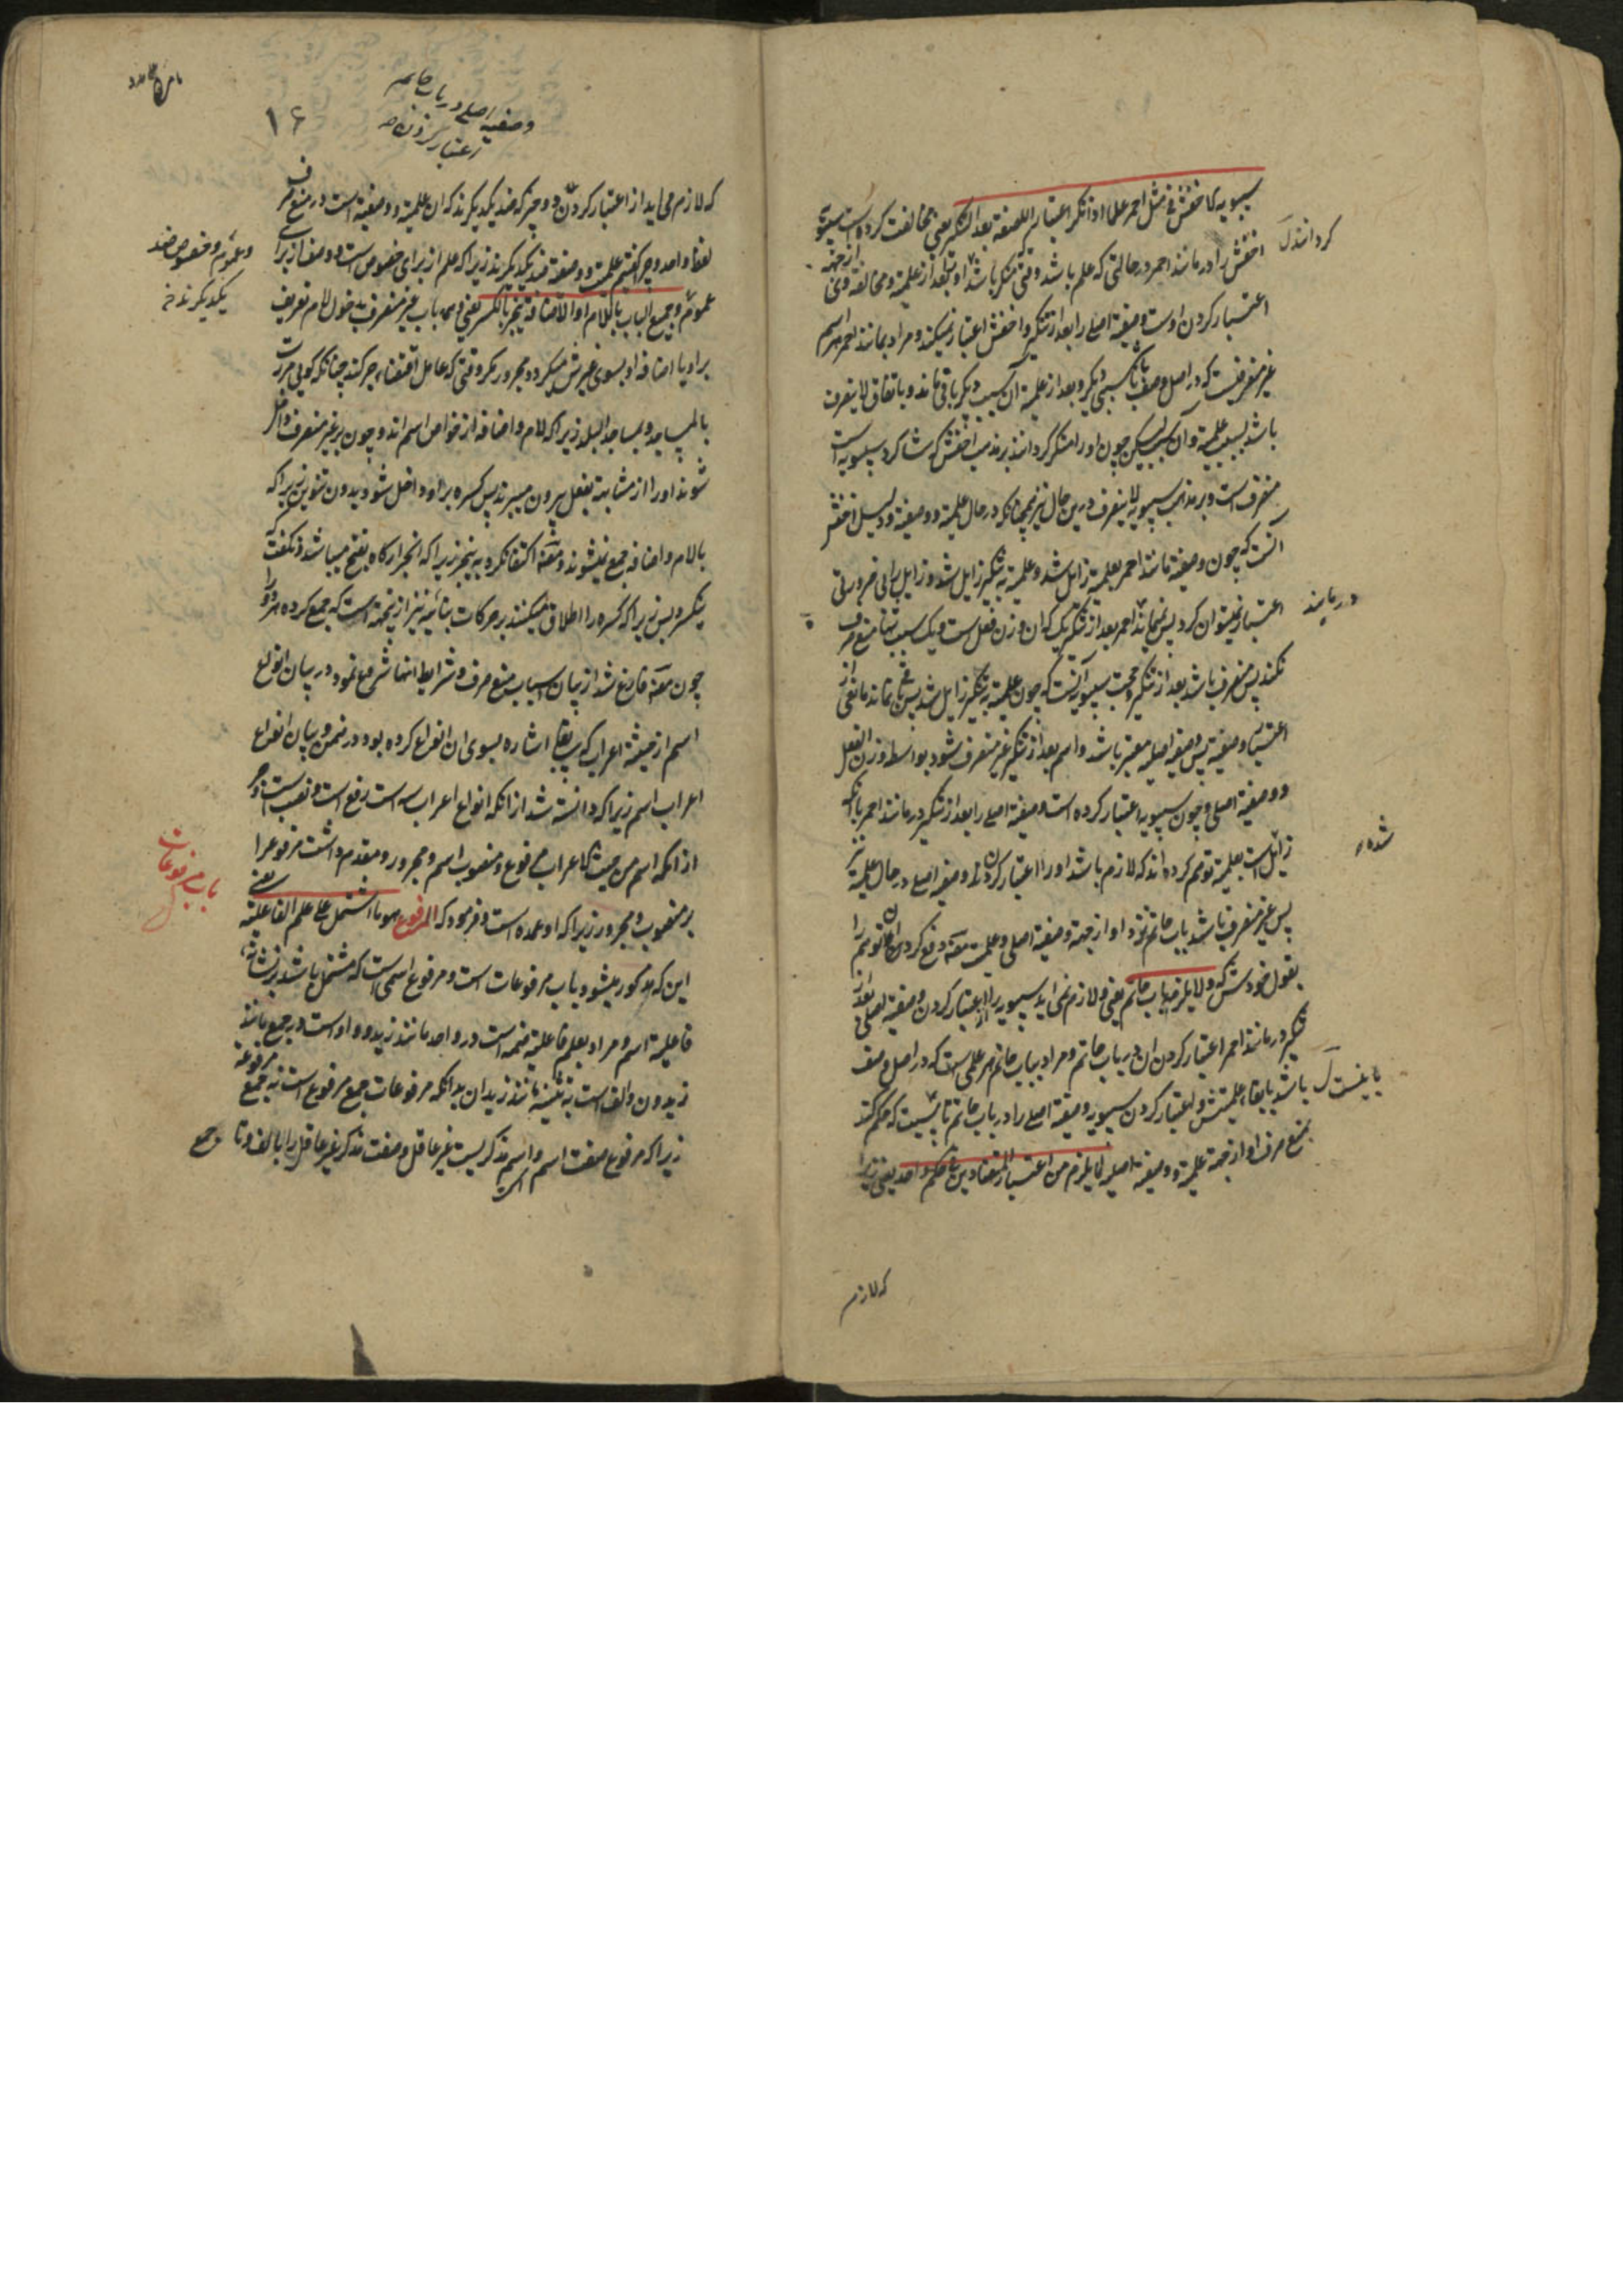 سیبویه الاخفش فی مثل احمر علما اذا نکر اعتبارا للصفة بعد التنکیر یعنی مخالفت کرده است سیبویه
اخفش را در مانند احمر در حالتی که علم باشد وقتی منکر باشد او بعد از علمیة و مخالفة وی از جهة
کردانند
اعتبار کردن اوست وصفیة اصلی را بعد از تنکیر و اخفش اعتبار نمیکند و مراد بمانند احمر هر اسم
غیر منصرفیست که در اصل وصف باشد با سببی دیگر و بعد از علمیة آن سبب دیگر باقی ماند و باتفاق لاینصرف
باشد بسبب علمیة و آن سبب لیکن چون او را منکر گردانند بر مذهب اخفش که شاکرد سیبویه است
منصرف است و بر مذهب سیبویه لاینصرف درین حال نیز همچنانکه در حال علمیة و وصفیة و دلیل اخفش
آنست که چون وصفیة مانند احمر بعلمیة زایل شد و علمیة به تنکیر زایل شد و زایل را بی ضرورتی
اعتبار نمیتوان کرد پس نمیماند احمر بعد از تنکیر یک که آن وزن فعل است و یک سبب تنها منع صرف
در مانند
نکند پس منصرف باشد بعد از تنکیر و حجت سیبویه آنست که چون علمیة به تنکیر زایل شد پس نماند مانعی از
اعتبار وصفیة پس وصفیة اصلیه معتبر باشد و اسم بعد از تنکیر غیر منصرف شود بواسطه وزن الفعل
و وصفیة اصلی و چون سیبویه اعتبار کرده است وصفیة اصلی را بعد از تنکیر در مانند احمر با آنکه
زائل است بعلمیة توهم کرده اند که لازم باشد او را اعتبار کردن وصفیة اصلی در حال علمیة نیز
شده
پس غیر منصرف باشد باب حاتم نزد او از جهة وصفیة اصلی و علمیت مصنف دفع کردن این توهم را
بقول خودش که ولا یلزمه باب حاتم یعنی و لازم نمی اید سیبویه را از اعتبار کردن وصفیة اصلی بعد از
تنکیر در مانند احمر اعتبار کردن ان در باب حاتم و مراد بباب حاتم هر علمی است که در اصل وصف
باشد با بقاء علمیتش و اعتبار کردن سیبویه وصفیة اصلی را در باب حاتم تا بیست که حکم کند
بمنع صرف او از جهة علمیة و وصفیة اصلیه لما یلزم من اعتبار المتضادین فی حکم واحد یعنی زیرا
که لازم
وصفیه اصلی در باب حاتم
اعتبار کردن
۱۶
که لازم می اید از اعتبار کردن دو چیز که ضد یکدیگرند که ان علمیة و وصفیة است در منع صرف
لفظ واحد و چرا گفتیم علمیت و وصفیة ضد یکدیگرند زیرا که علم از برای خصوص است و وصف از برای
و عموم و خصوص ضد
یکدیگرند
عموم و جمیع الباب باللام او الاضافة ینجر بالکسر یعنی و همه باب غیر منصرف بدخول لام تعریف
بر او یا اضافه او بسوی غیرش میگردد مجرور بکسر وقتی که عامل اقتضاء جر کند چنانکه گویی مررت
بالمساجد و بمساجد البلد زیرا که لام و اضافه از خواص اسم اند و چون بر غیر منصرف داخل
شوند او را از مشابهة بفعل بیرون میبرند پس کسره بر او داخل شود بدون تنوین زیرا که
بالام و اضافه جمع نمیشوند و مصنف اکتفا نکرد به ینجر زیرا که انجرار گاه بفتح میباشد و نگفت که
ینکسر پس زیرا که کسره را اطلاق میکنند بر حرکات بنائیه نیز ازینجهة است که جمع کرده هر دو را
چون مصنف فارغ شد از بیان اسباب منع صرف و شرایط انها شروع نمود در بیان انواع
اسم از حیثیة اعراب که سابقا اشاره بسوی ان انواع کرده بود در ضمن بیان انواع
اعراب اسم زیرا که دانسته شد از انکه انواع اعراب سه است رفع است و نصب است و جر
ازانکه اسم من حیث الاعراب مرفوع و منصوب اسم و مجرور و مقدم داشت مرفوع را
باب مرفوعات
بر منصوب و مجرور زیرا که او عمده است و فرمود که المرفوع هو ما اشتمل علی علم الفاعلیة یعنی
این که مذکور میشود باب مرفوعات است و مرفوع اسمی است که مشتمل باشد بر نشانه
فاعلیة اسم و مراد بعلم فاعلیة ضمه است در واحد مانند زید و واو است در جمع مانند
زیدون و الف است به تثنیه مانند زیدان بدانکه مرفوعات جمع مرفوع است نه جمع مرفوعة
زیرا که مرفوع صفت اسم است و اسم مذکریست غیر عاقل و صفت مذکر غیر عاقل را با الف و تا جمع